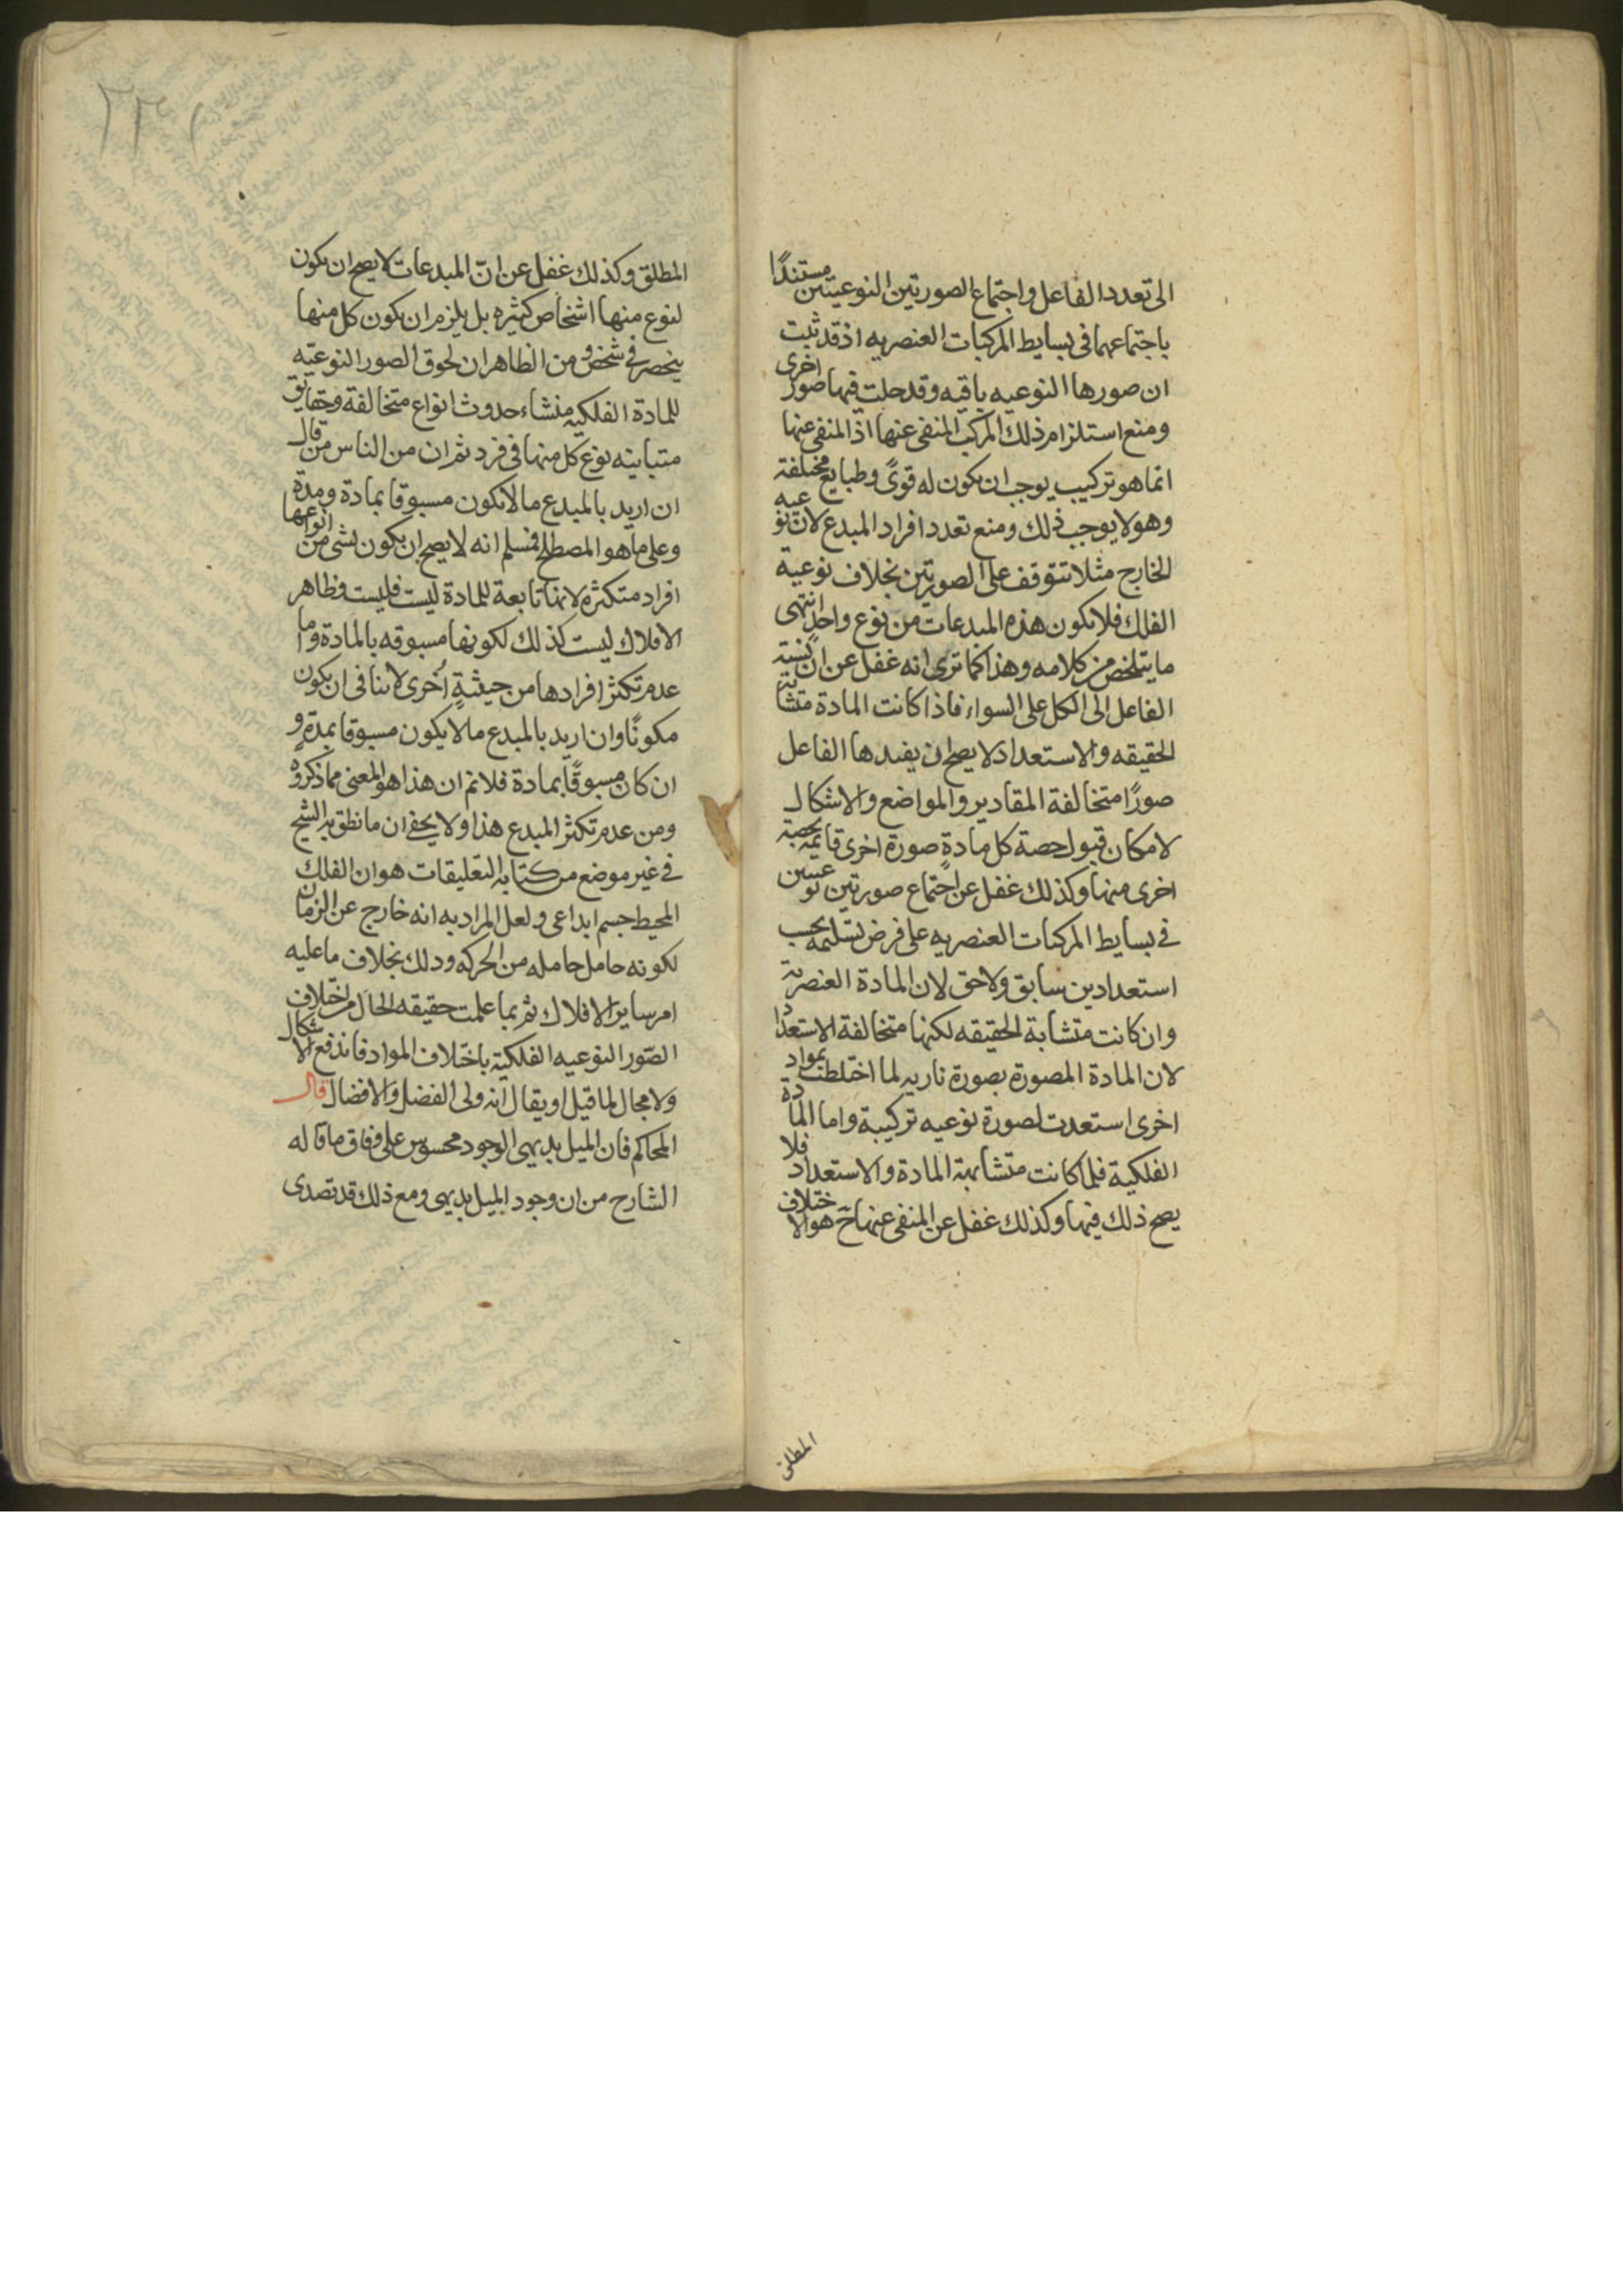 الى تعدد الفاعل واجتماع الصورتين النوعيتين مستندًا
باجتماعهما فى بسايط المركبات العنصريه اذ قد ثبت
ان صورها النوعيه باقيه وقد حلت فيها صور اخرى
ومنع استلزام ذلك المركب المنفى عنها اذ المنفى عنها
انما هو تركيب يوجب ان يكون له قوىً وطبايع مختلفة
وهو لا يوجب ذلك ومنع تعدد افراد المبدع لان نوعيه
الخارج مثلا تتوقف على الصورتين بخلاف نوعية
الفلك فلا يكون هذه المبدعات من نوع واحد انتهى
ما يتلخص من كلامه وهذا كما ترى انه غفل عن ان نسبة
الفاعل الى الكل على السواء فاذا كانت المادة متشابهة
الحقيقه والاستعداد لا يصح ان يفيدها الفاعل
صورًا متخالفة المقادير والمواضع والاشكال
لامكان قبول حصة كل مادةٍ صورة اخرى قايمه بحصة
اخرى منها وكذلك غفل عن اجتماع صورتين نوعيتين
فى بسايط المركبات العنصريه على فرض تسليمه بحسب
استعدادين سابق ولاحق لان المادة العنصرية
وان كانت متشابة الحقيقه لكنها متخالفة الاستعداد
لان المادة المصورة بصورة ناريه لما اختلطت بمواد
اخرى استعدت لصورة نوعيه تركيبية واما المادة
الفلكية فلما كانت متشابهة المادة والاستعداد فلا
يصح ذلك فيها وكذلك غفل عن المنفى عنها ح هو الاختلاف
المطلق
المطلق وكذلك غفل عن انّ المبدعات لا يصح ان يكون
لنوع منها اشخاص كثيره بل يلزم ان يكون كل منها
ينحصر فى شخص ومن الظاهر ان لحوق الصور النوعيّه
للمادة الفلكيه منشاء حدوث انواع متخالفة وحقايق
متباينه نوع كل منها فى فرد ثم ان من الناس من قال
ان اريد بالمبدع ما لا يكون مسبوقا بمادة ومدة
وعلى ما هو المصطلح فمسلم انه لا يصح ان يكون لشى من انواعها
افراد متكثره لانها تابعة للمادة ليست فليست وظاهر
الافلاك ليست كذلك لكونها مسبوقه بالمادة واما
عدم تكثر افرادها من حيثيةٍ اُخرى لا ينافى ان يكون
مكونًا وان اريد بالمبدع ما لا يكون مسبوقا بمدةٍ و
ان كان مسبوقًا بمادة فلانم ان هذا هو المعنى مما ذكروه
ومن عدم تكثر المبدع هذا ولا يخفى ان ما نطق به الشيخ
فى غير موضع من كتابه التعليقات هو ان الفلك
المحيط جسم ابداعى ولعل المراد به انه خارج عن الزمان
لكونه حامل حامله من الحركه وذلك بخلاف ما عليه
امر ساير الافلاك ثم بما علمت حقيقه الحال من اختلاف
الصّور النوعيه الفلكية باختلاف المواد فاندفع الاشكال
ولا مجال لما قيل او يقال انه ولى الفضل والافضال قال
المحاكم فان الميل بديهى الوجود محسوس على وفاق ما قاله
الشارح من ان وجود الميل بديهى ومع ذلك قد تصدى